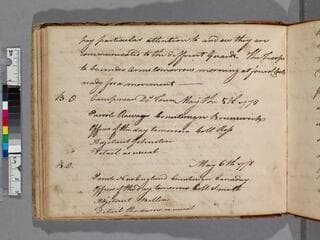 pay particular attention to and see they are
communicated to the different Guards. The Troops
to be under Arms tomorrow morning at four Clock
ready for a movement
B.O. Camp near Dr Town May the 5th 1778
Parole Countersign Brunswick
Officer of the day tomorrow Coll Ross
Adjutant Johnston
Detail as usual
B.O. May 6th 1778
Parole New England Countersign Canaday
Officer of the Day tomorrow Coll Smith
Adjutant
Detail the same as usual